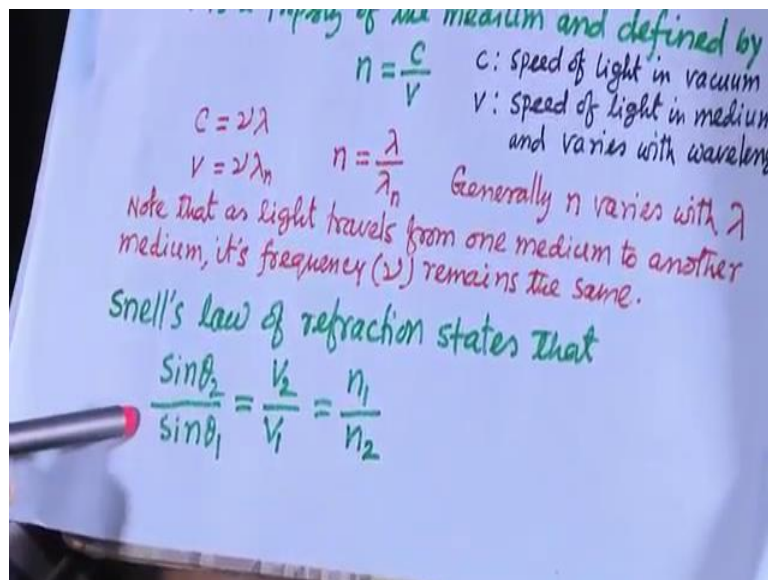 of the medium and defined by
n = c/v   c: speed of light in vacuum
v: speed of light in medium
and varies with waveleng
c = νλ
v = νλₙ   n = λ/λₙ   Generally n varies with λ
Note that as light travels from one medium to another
medium, it's frequency (ν) remains the same.
Snell's law of refraction states that
sinθ₂/sinθ₁ = v₂/v₁ = n₁/n₂